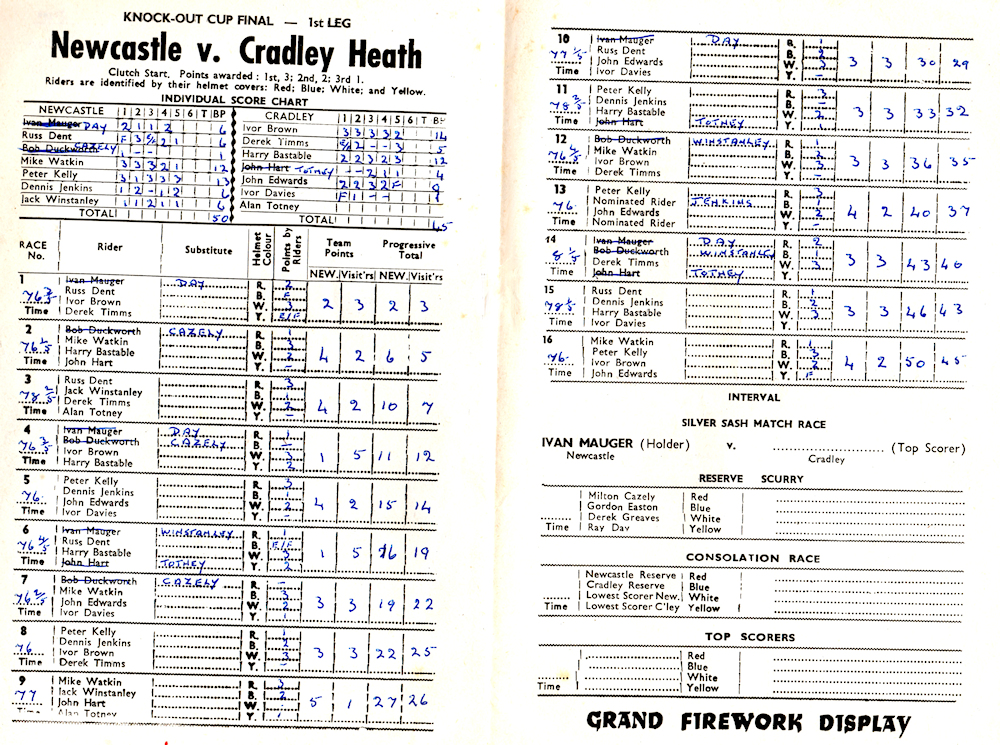 KNOCK-OUT CUP FINAL — 1st LEG
Newcastle v. Cradley Heath
Clutch Start. Points awarded : 1st, 3; 2nd, 2; 3rd 1.
Riders are identified by their helmet covers: Red; Blue; White; and Yellow.
INDIVIDUAL SCORE CHART
NEWCASTLE 1 2 3 4 5 6 T BP
Ivan Mauger DAY 2 1 1 2 6
Russ Dent F 3 E/F 2 1 6
Bob Duckworth CAZELY 1 - - 1
Mike Watkin 3 3 3 2 1 12
Peter Kelly 3 1 3 3 3 13
Dennis Jenkins 1 2 - 1 2 6
Jack Winstanley 1 1 2 1 1 6
TOTAL 50
CRADLEY 1 2 3 4 5 6 T BP
Ivor Brown 3 3 3 3 2 14
Derek Timms E/F 2 - - 3 5
Harry Bastable 2 2 3 2 3 12
John Hart TOTNEY - - 2 1 1 4
John Edwards 2 2 3 2 F
Ivor Davies F 1 - -
Alan Totney
TOTAL 45
RACE No. Rider Substitute Helmet Colour Points by Riders Team Points Progressive Total
NEW. Visit'rs NEW. Visit'rs
1 Ivan Mauger DAY R. 2
Russ Dent B. F
Ivor Brown W. 3
Derek Timms Y. E/F
2 3 2 3
2 Bob Duckworth CAZELY R. 1
Mike Watkin B. 3
Harry Bastable W. 2
Time John Hart Y. -
4 2 6 5
3 Russ Dent R. 3
Jack Winstanley B. 1
Derek Timms W. 2
Time Alan Totney Y. -
4 2 10 7
4 Ivan Mauger DAY R. 1
Bob Duckworth CAZELY B. -
Ivor Brown W. 3
Time Harry Bastable Y. 2
1 5 11 12
5 Peter Kelly R. 3
Dennis Jenkins B. 1
76. John Edwards W. 2
Time Ivor Davies Y. -
4 2 15 14
6 Ivan Mauger WINSTANLEY R. 1
Russ Dent B. E/F
Harry Bastable W. 3
Time John Hart TOTNEY Y. 2
1 5 16 19
7 Bob Duckworth CAZELY R. -
Mike Watkin B. 3
John Edwards W. 2
Time Ivor Davies Y. 1
3 3 19 22
8 Peter Kelly R. 1
Dennis Jenkins B. 2
76 Ivor Brown W. 3
Time Derek Timms Y. -
3 3 22 25
9 Mike Watkin R. 3
77 Jack Winstanley B. 2
John Hart W.
Time Alan Totney Y.
5 1 27 26
10 Ivan Mauger DAY R.
Russ Dent B.
John Edwards W.
Time Ivor Davies Y. -
3 3 30 29
11 Peter Kelly R. 3
Dennis Jenkins B. -
Harry Bastable W. 2
Time John Hart TOTNEY Y. 1
3 3 33 32
12 Bob Duckworth WINSTANLEY R. 1
Mike Watkin B.
Ivor Brown W. 3
Time Derek Timms Y. -
3 3 36 35
13 Peter Kelly R. 3
Nominated Rider JENKINS B. 1
76. John Edwards W. 2
Time Nominated Rider Y. -
4 2 40 37
14 Ivan Mauger DAY R. 2
Bob Duckworth WINSTANLEY B. 1
Derek Timms W. 3
Time John Hart TOTNEY Y.
3 3 43 40
15 Russ Dent R. 1
Dennis Jenkins B. 2
Harry Bastable W. 3
Time Ivor Davies Y. -
3 3 46 43
16 Mike Watkin R. 1
Peter Kelly B. 3
76. Ivor Brown W. 2
Time John Edwards Y. F
4 2 50 45
INTERVAL
SILVER SASH MATCH RACE
IVAN MAUGER (Holder) v. (Top Scorer)
Newcastle Cradley
RESERVE SCURRY
Milton Cazely Red
Gordon Easton Blue
Derek Greaves White
Time Ray Day Yellow
CONSOLATION RACE
Newcastle Reserve Red
Cradley Reserve Blue
Lowest Scorer New. White
Time Lowest Scorer C'ley Yellow
TOP SCORERS
Red
Blue
White
Time Yellow
GRAND FIREWORK DISPLAY